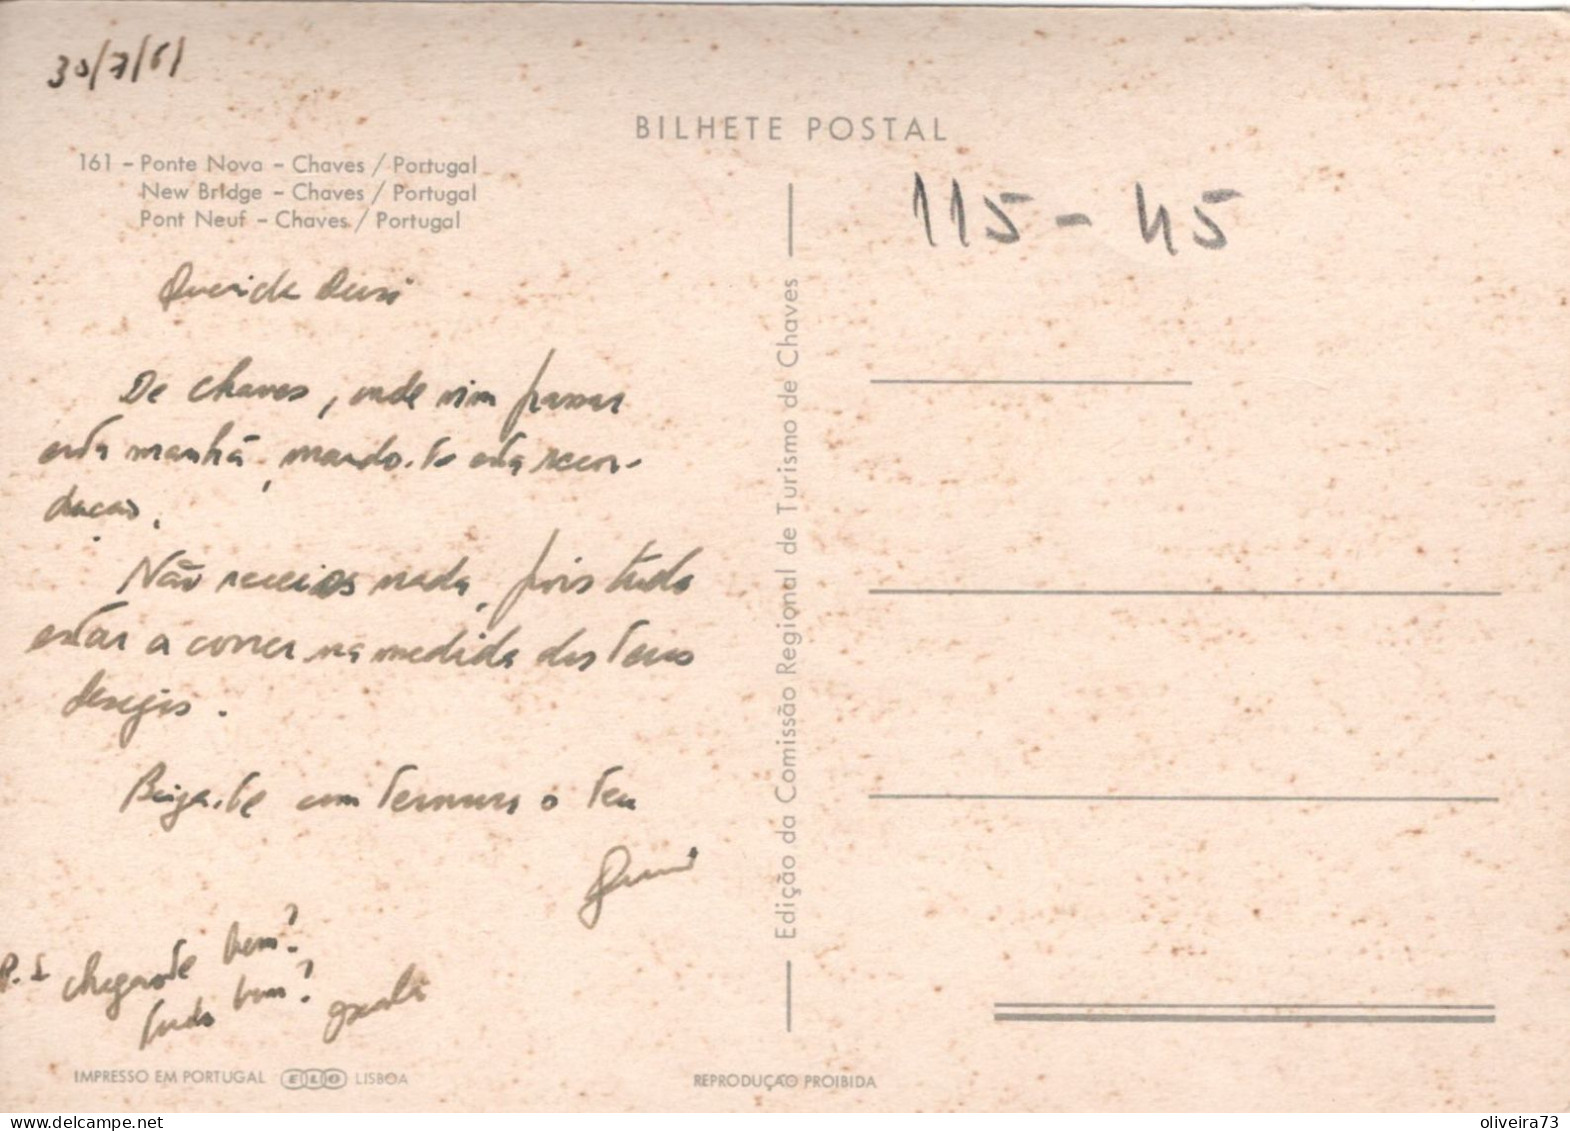 30/7/61
BILHETE POSTAL
161 – Ponte Nova – Chaves / Portugal
New Bridge – Chaves / Portugal
Pont Neuf – Chaves / Portugal
115 - 45
Querida
De chaves, onde vim passar
esta manhã, mando-te esta recor-
dação.
Não receios nada, pois tudo
estar a correr na medida dos teus
desejos.
Beija-te com ternura o teu
P.S chegaste bem?
Tudo bem? oxalá
Edição da Comissão Regional de Turismo de Chaves
IMPRESSO EM PORTUGAL ELO LISBOA
REPRODUÇAO PROIBIDA
oliveira73